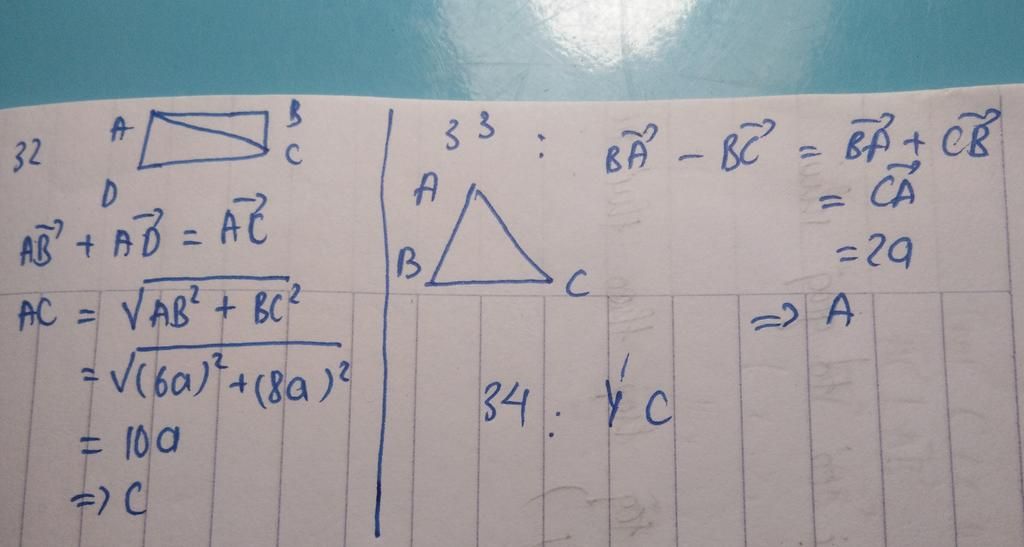 32
A B
C
D
AB⃗ + AD⃗ = AC⃗
AC = √(AB² + BC²)
= √((6a)² + (8a)²)
= 10a
=> C
33 : BA⃗ - BC⃗ = BA⃗ + CB⃗
= CA⃗
= 2a
=> A
A
B C
34 : Ý C